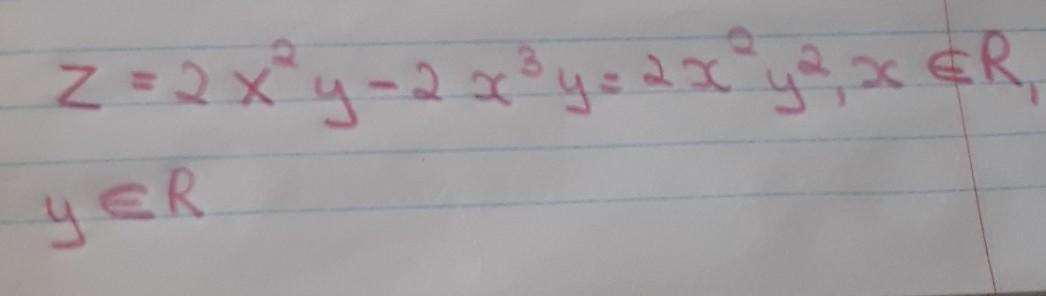 z = 2x²y - 2x³y = 2x²y², x ∈ R,
y ∈ R